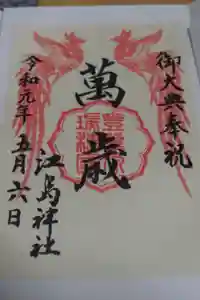 御大典奉祝
萬歳
令和元年
五月六日
江島神社